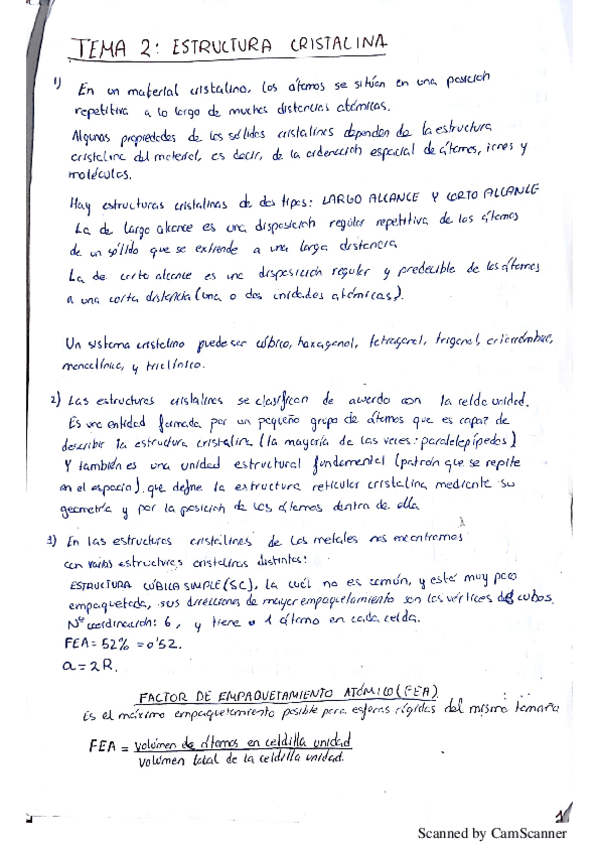 TEMA 2: ESTRUCTURA CRISTALINA
1) En un material cristalino, los átomos se sitúan en una posición
repetitiva a lo largo de muchas distancias atómicas.
Algunas propiedades de los sólidos cristalinos dependen de la estructura
cristalina del material, es decir, de la ordenación espacial de átomos, iones y
moléculas.
Hay estructuras cristalinas de dos tipos: LARGO ALCANCE Y CORTO ALCANCE
La de largo alcance es una disposición regular repetitiva de los átomos
de un sólido que se extiende a una larga distancia
La de corto alcance es una disposición regular y predecible de los átomos
a una corta distancia (una o dos unidades atómicas).
Un sistema cristalino puede ser cúbico, hexagonal, tetragonal, trigonal, ortorrómbico,
monoclínico, y triclínico.
2) Las estructuras cristalinas se clasifican de acuerdo con la celda unidad.
Es una entidad formada por un pequeño grupo de átomos que es capaz de
describir la estructura cristalina (la mayoría de las veces: paralelepípedos)
Y también es una unidad estructural fundamental (patrón que se repite
en el espacio) que define la estructura reticular cristalina mediante su
geometría y por la posición de los átomos dentro de ella
3) En las estructuras cristalinas de los metales nos encontramos
con varias estructuras cristalinas distintas:
ESTRUCTURA CÚBICA SIMPLE (SC), la cuál no es común, y está muy poco
empaquetada, sus direcciones de mayor empaquetamiento son los vértices del cubo.
Nº coordinación: 6, y tiene 1 átomo en cada celda.
FEA = 52% = 0'52.
a = 2R.
FACTOR DE EMPAQUETAMIENTO ATÓMICO (FEA)
Es el máximo empaquetamiento posible para esferas rígidas del mismo tamaño
FEA = volúmen de átomos en celdilla unidad
volúmen total de la celdilla unidad.
1
Scanned by CamScanner